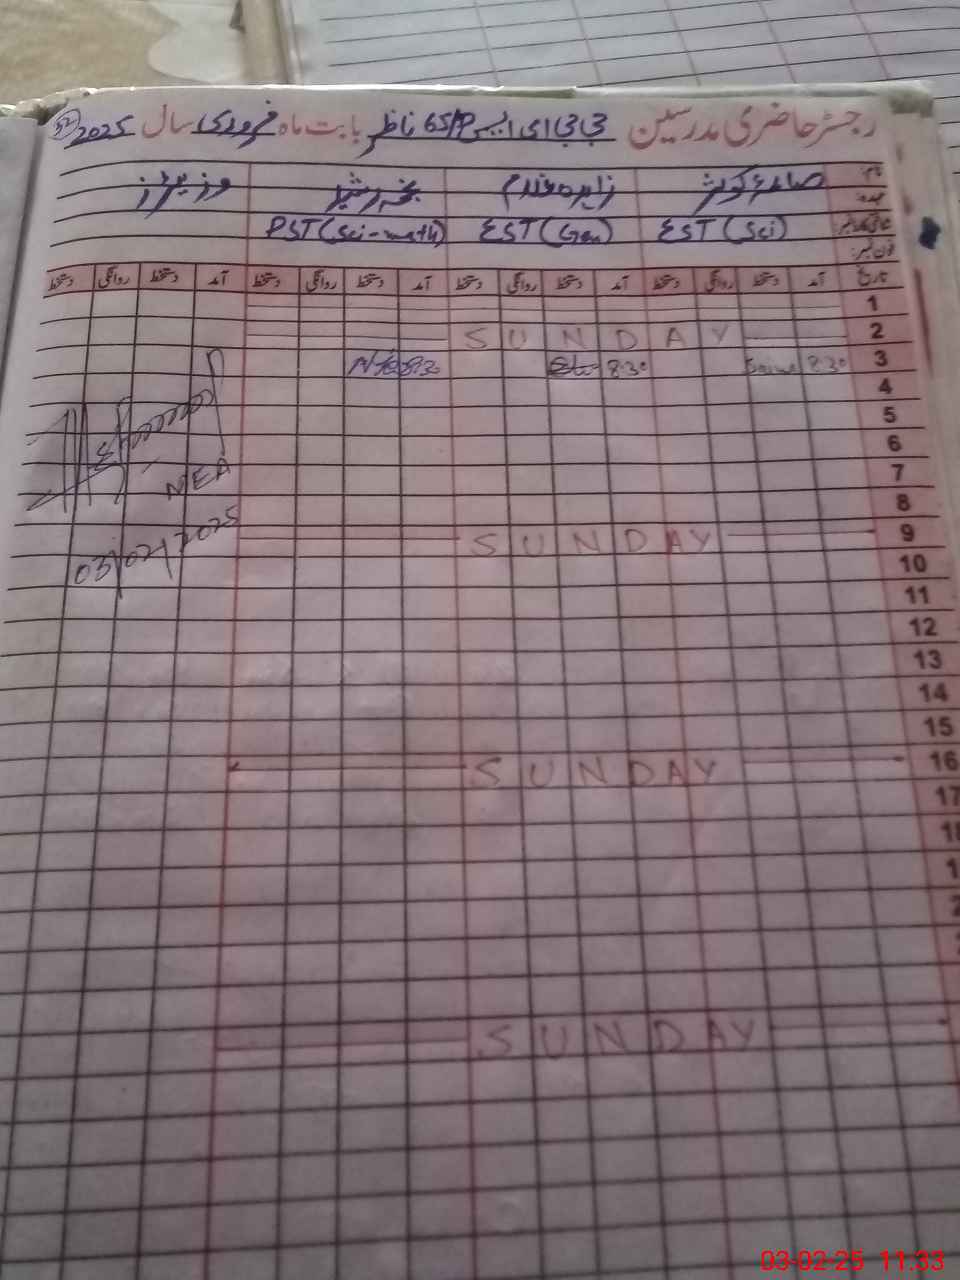 رجسٹر حاضری مدرسین جی جی ای ایس 65/P ناظر بابت ماہ فروری سال 2025 52
نام: صائمہ کوثر زاہدہ خادم نجمہ رشید وزیٹرز
عہدہ:
EST (Sci) EST (Gen) PST (Sci-math)
فون نمبر:
تاریخ آمد دستخط روانگی دستخط آمد دستخط روانگی دستخط آمد دستخط روانگی دستخط آمد دستخط روانگی دستخط
1
2 SUNDAY
3 8:30 Saima 8:30 8:30
4
5
6
7
MEA
8
9 SUNDAY
03/02/2025
10
11
12
13
14
15
16 SUNDAY
17
SUNDAY
03-02-25 11:33